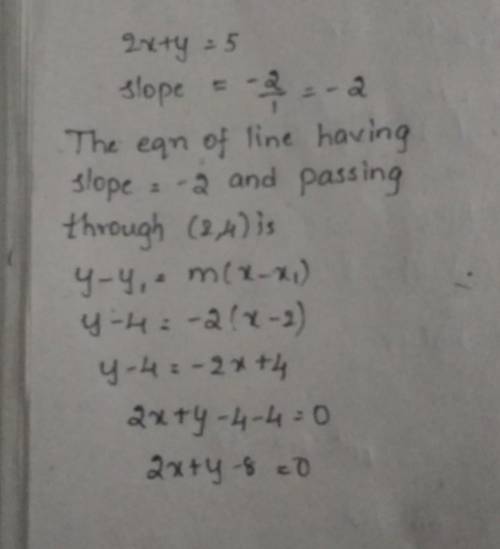 2x+y = 5
slope = -2/1 = -2
The eqn of line having
slope = -2 and passing
through (2,4) is
y-y₁ = m(x-x₁)
y-4 = -2(x-2)
y-4 = -2x+4
2x+y-4-4=0
2x+y-8=0